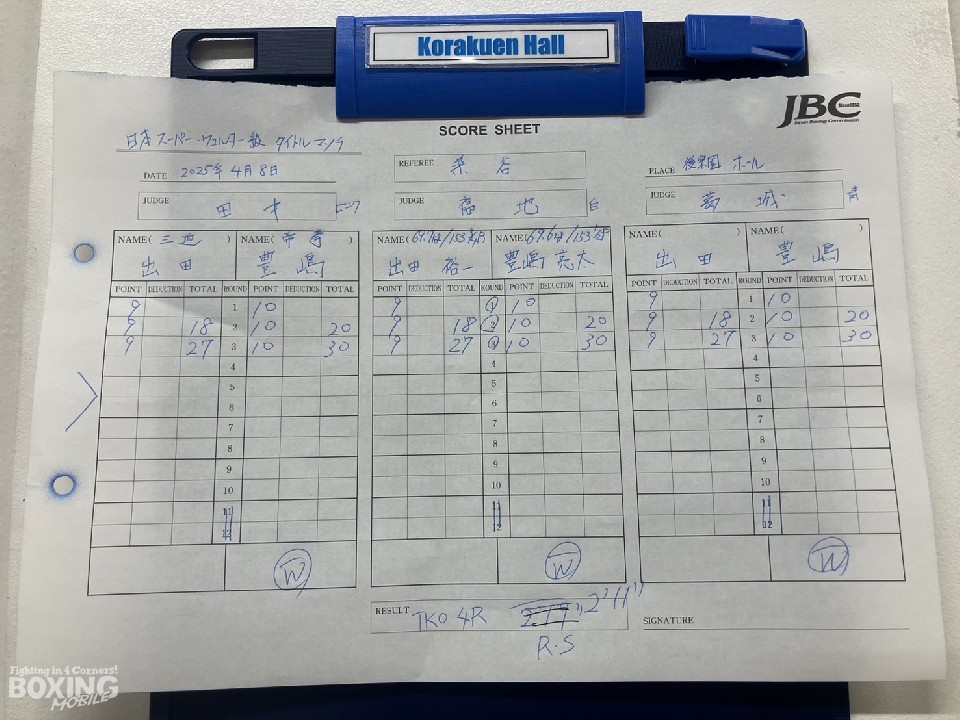 Korakuen Hall
JBC
Japan Boxing Commission
SCORE SHEET
日本スーパーウェルター級 タイトルマッチ
DATE 2025年4月8日
REFEREE
PLACE 後楽園ホール
JUDGE 田中 ピンク
JUDGE 福地 白
JUDGE 葛城 青
NAME( 三迫 ) NAME( 帝拳 )
出田 豊嶋
NAME( NAME(
出田 裕一 豊嶋 亮太
NAME( ) NAME( )
出田 豊嶋
POINT DEDUCTION TOTAL ROUND POINT DEDUCTION TOTAL
9 1 10
9 18 2 10 20
9 27 3 10 30
4
5
6
7
8
9
10
11
12
W
POINT DEDUCTION TOTAL ROUND POINT DEDUCTION TOTAL
9 1 10
9 18 2 10 20
9 27 3 10 30
4
5
6
7
8
9
10
11
12
W
POINT DEDUCTION TOTAL ROUND POINT DEDUCTION TOTAL
9 1 10
9 18 2 10 20
9 27 3 10 30
4
5
6
7
8
9
10
11
12
W
RESULT TKO 4R 2'11"
R.S
SIGNATURE
Fighting in 4 Corners!
BOXING
MOBILE